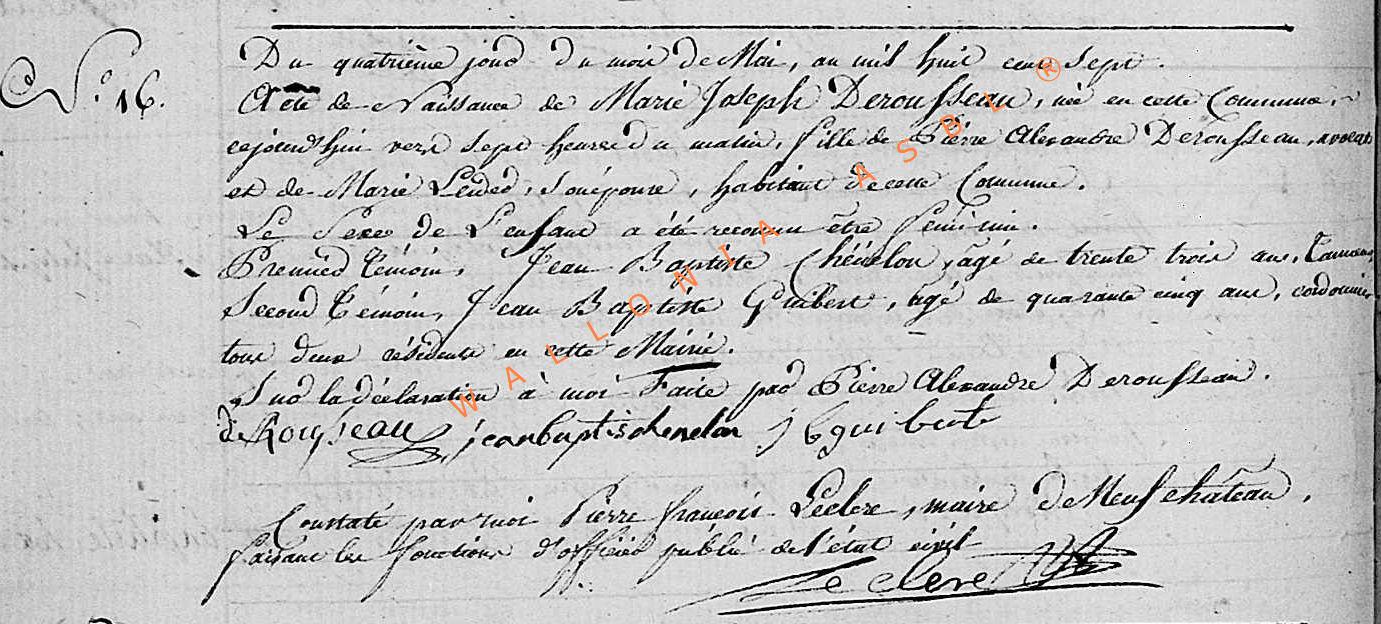 N.° 16.
Du quatrième jour du mois de Mai, an mil huit cent sept.
Acte de Naissance de Marie Joseph Derousseau, née en cette Commune,
cejourd'hui vers sept heures du matin, fille de Pierre Alexandre Derousseau, avocat
et de Marie, son épouse, habitant de cette Commune.
Le Sexe de L'enfant a été reconnu être feminin.
Premier témoin, Jean Baptiste Chénelon, agé de trente trois ans,
Second témoin, Jean Baptiste Guibert, agé de quarante cinq ans, cordonnier,
tous deux résidents en cette Mairie.
Sur la déclaration à moi Faite par Pierre Alexandre Derousseau.
deRousseau jeanbaptis chenelon J b guibert
Constaté par moi Pierre françois Leclerc, maire de Neufchâteau,
faisant les fonctions d'officier public de l'état civil
Leclerc
WALLONIA ASBL ®